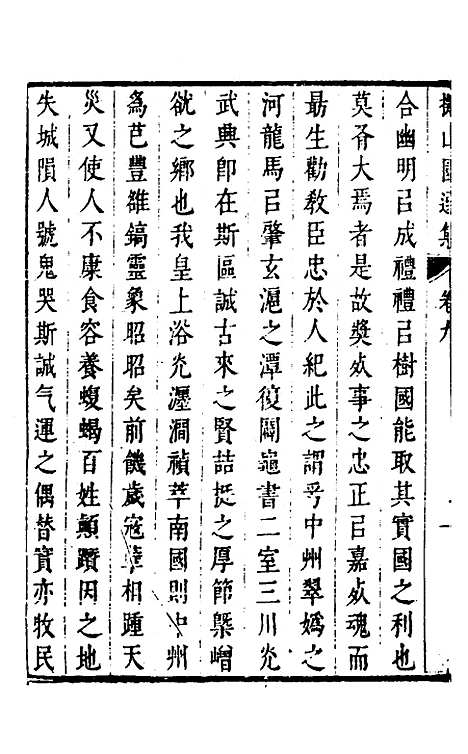 擬山園選集 卷九
合幽明㠯成禮禮㠯樹國能取其實國之利也
莫大焉者是故獎㱙事之忠正㠯嘉㱙魂而
最生勸教臣忠於人紀此之謂乎中州翠媯之
河龍馬㠯肇玄滬之潭復闢龜書二室三川炎
武典卽在斯區誠古來之賢喆挺之厚節槩嶒
欲之鄉也我皇上浴灋澗禎萃南國則中州
為芑豐雒鎬靈象昭昭矣前饑歲寇相踵天
災又使人不康食容養蝮蝎百姓顛躓因之地
失城隕人號鬼哭斯誠气運之偶替實亦牧民